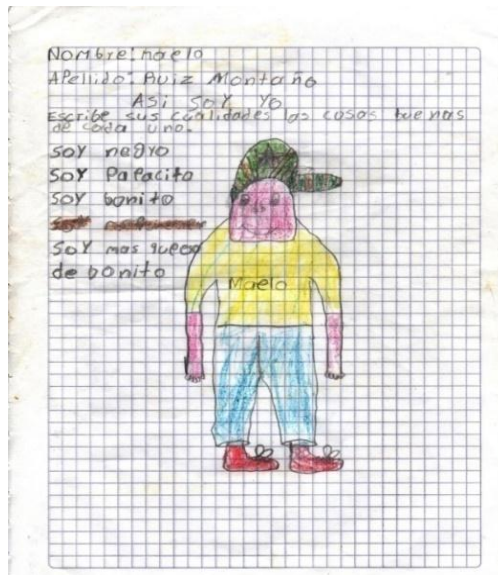 Nombre: maelo
APellido: Ruiz Montaño
Asi Soy Yo
Escribe sus cualidades las cosas buenas
de cada uno.
SOY negro
SOY Papacito
SOY bonito
SOY
SOY mas queeso
de bonito
Maelo